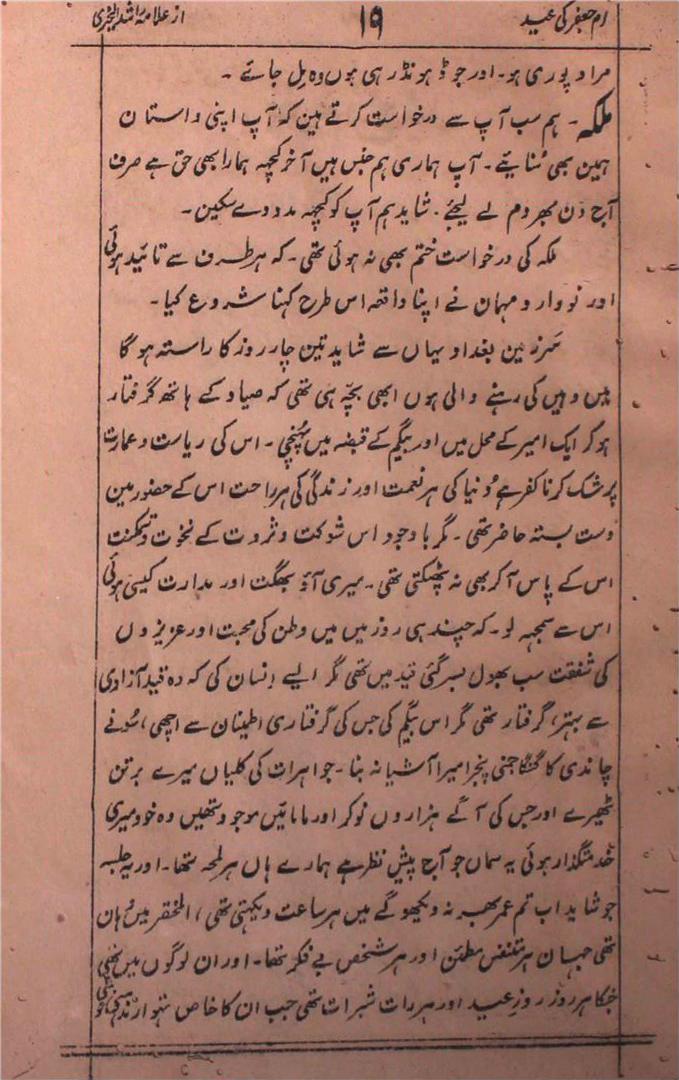 ام جعفر کی عید ۱۹ از علامہ راشد الخیری
مراد پوری ہو۔ اور جو ڈہونڈ رہی ہوں وہ مل جائے ۔
ملکہ ۔ ہم سب آپ سے درخواست کرتے ہین کہ آپ اپنی داستان
ہمین بھی سُنایئے۔ آپ ہماری ہم جنس ہیں آخر کچہہ ہمارا بھی حق ہے صرف
آج دن بھر دم لے لیجئے ۔ شاید ہم آپ کو کچہہ مدد دے سکین ۔
ملکہ کی درخواست ختم بھی نہ ہوئی تھی ۔ کہ ہر طرف سے تائید ہوئی
اور نووارد مہمان نے اپنا واقعہ اس طرح کہنا شروع کیا ۔
سَرزمین بغداد یہاں سے شاید تین چار روز کا راستہ ہو گا
میں وہیں کی رہنے والی ہوں ابھی بچّہ ہی تھی کہ صیاد کے ہاتھ گرفتار
ہو کر ایک امیر کے محل میں اور بیگم کے قبضہ میں پہنچی ۔ اس کی ریاست و عمارت
پر شک کرنا کفر ہے دُنیا کی ہر نعمت اور زندگی کی ہر راحت اس کے حضور مین
دست بستہ حاضر تھی ۔ مگر باوجود اس شوکت و ثروت کے نخوت و تمکنت
اس کے پاس آ کر بھی نہ پھٹکتی تھی ۔ میری آؤ بھگت اور مدارت کیسی ہوئی
اس سے سمجہہ لو ۔ کہ چند ہی روز میں میں وطن کی محبت اور عزیزوں
کی شفقت سب بھول بسر گئی قید میں تھی مگر ایسے انسان کی کہ وہ قید آزادی
سے بہتر، گرفتار تھی مگر اس بیگم کی جس کی گرفتاری اطینان سے اچھی ، سُونے
چاندی کا گنگا جمنی پنجرا میرا آشیانہ بنا ۔ جواہرات کی کلیاں میرے برتن
ٹھیرے اور جس کی آگے ہزاروں نوکر اور مامائیں موجود تھیں وہ خود میری
خدمتگذار ہوئی یہ سماں جو آج پیش نظر ہے ہمارے ہاں ہر لمحہ تھا ۔ اور یہ جلسہ
جو شاید اب تم عمر بھر نہ دیکھو گے میں ہر ساعت دیکہتی تھی ، المختصر میں وہان
تھی جہان ہر متنفس مطمئن اور ہر شخص بے فکر تھا ۔ اور ان لوگوں میں تھی
جنکا ہر روز روزِ عید اور ہر رات شبرات تھی جب ان کا خاص تہوار